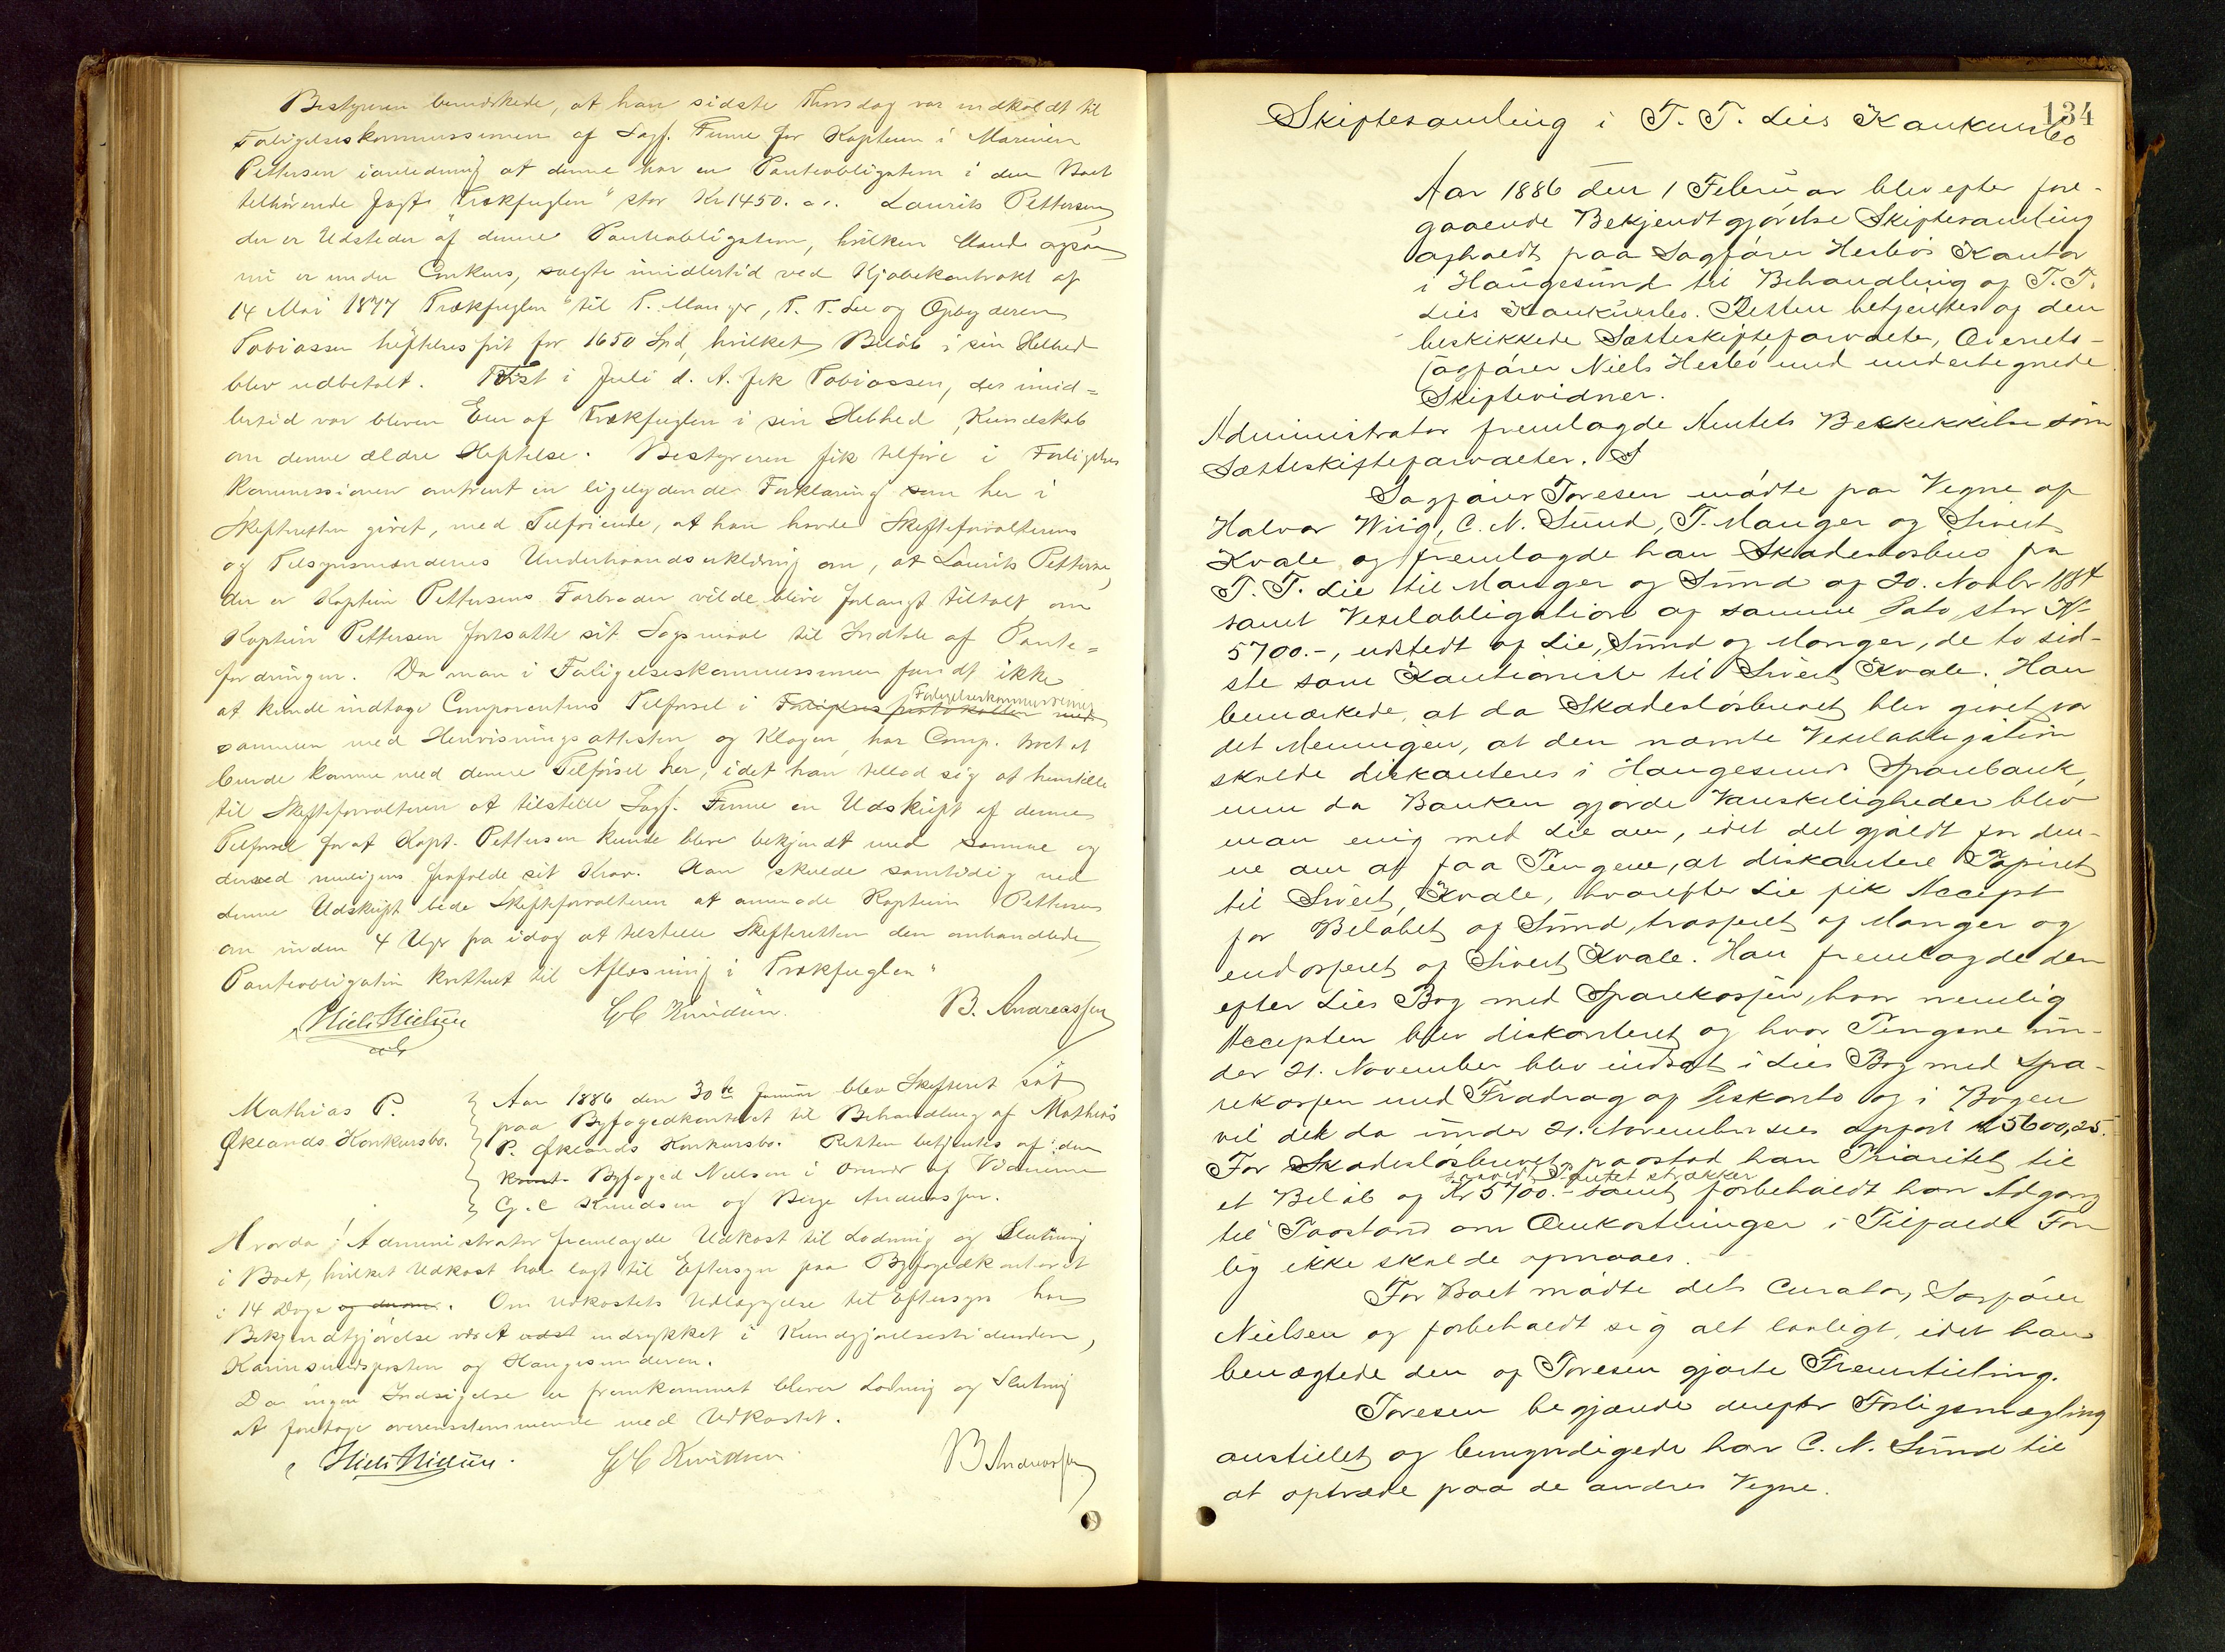 Bestyreren bemærkede, at han sidste Thorsdag var indkaldt til
Forligelseskommissionen af Sagf. Finne for Kaptein i Marinen
Pettersen i anledning at denne har en Panteobligation i den Boet
tilhørende Jagt "Trækfuglen" stor Kr 1450. Laurits Pettersen
der er Udsteder af denne Panteobligation, hvilken Mand ogsaa
nu er under Conkurs, solgte imidlertid ved Kjøbekontrakt af
14 Mai 1877 "Trækfuglen" til T. Manger, T. T. Lie og Opbyderen
Tobiassen heftelsesfrit for 1650 Spd, hvilket Beløb i sin Helhed
blev udbetalt. Først i Juli d. A. fik Tobiassen, der imid=
lertid var bleven Eier af Trækfuglen i sin Helhed, Kundskab
om denne ældre Heftelse. Bestyreren fik tilføie i Forligelses
kommissionen omtrent en ligelydende Forklaring som her i
Skifteretten givet, med Tilføiende, at han havde Skifteforvalterens
og Tilsynsmændenes Underhaandserklæring om, at Laurits Pettersen,
der er Kaptein Pettersens Farbroder vilde blive forlangt tiltalt om
Kaptein Pettersen fortsatte sit Søgsmaal til Indtale af Pante=
fordringen. Da man i Forligelseskommissionen fandt ikke
at kunde indtage Comparentens Tilførsel i Forligelses protokollen med
Forligelseskommissionens
sammen med Henvisningsattesten og Klagen, har Comp. troet at
burde komme med denne Tilførsel her, idet han tillod sig at henstille
til Skifteforvalteren at tilstille Sagf. Finne en Udskrift af denne
Tilførsel for at Kapt. Pettersen kunde blive bekjendt med samme og
derved muligens frafalde sit Krav. Han skulde samtidig med
denne Udskrift bede Skifteforvalteren at anmode Kaptein Pettersen
om inden 4 Uger fra idag at tilstille Skifteretten den omhandlede
Panteobligation kvitteret til Aflæsning i "Trækfuglen"
Niels Nielsen G C Knudsen. B. Andreassen
Mathias P.
Øklands Konkursbo.
Aar 1886 den 30te Januar blev Skifteret sat
paa Byfogedkontoret til Behandling af Mathias
P. Øklands Konkursbo. Retten betjentes af den
konst. Byfoged Nielsen i Overvær af Vidnerne
G. C Knudsen og Berge Andreassen.
Hvorda! Administrator fremlagde Udkast til Lodning og Slutning
i Boet, hvilket Udkast har lagt til Eftersyn paa Byfogedkontoret
i 14 Dage og derom. Om Udkastets Udlæggelse til Eftersyn har
Bekjendtgjørelse været udst indrykket i Kundgjørelsestidenden,
Karmsundsposten og Haugesunderen.
Da ingen Indsigelse er fremkommet bliver Lodning og Slutning
at foretage overensstemmende med Udkastet.
Niels Nielsen. G C Knudsen B Andreassen
134
Skiftesamling i T. T. Lies Konkursbo
Aar 1886 den 1 Februar blev efter fore-
gaaende Bekjendtgjørelse Skiftesamling
afholdt paa Sagfører Hesbøs Kontor
i Haugesund til Behandling af T. T.
Lies Konkursbo. Retten betjentes af den
beskikkede Sætteskifteforvalter, Overrets-
sagfører Niels Hesbø med undertegnede
Skiftevidner.
Administrator fremlagde Amtets Beskikkelse som
Sætteskifteforvalter.
Sagfører Toresen mødte paa Vegne af
Halvor Wiig, C. N. Sund, T. Manger og Sivert
Kvale og fremlagde han Skadesløsbrev fra
T. T. Lie til Manger og Sund af 20. Novbr 1884
samt Vexelobligation af samme Dato, stor Kr
5700.-, udstedt af Lie, Sund og Manger, de to sid-
ste som Kautionister til Sivert Kvale. Han
bemærkede, at da Skadesløsbrevet blev givet var
det Meningen, at den nævnte Vexelobligation
skulde diskonteres i Haugesunds Sparebank,
men da Banken gjorde Vanskeligheder blev
man enig med Lie om, idet det gjaldt for den-
ne om at faa Pengene, at diskontere Papiret
til Sivert Kvale, hvorefter Lie fik Accept
for Beløbet af Sund, trasseret af Manger og
endosseret af Sivert Kvale. Han fremlagde der-
efter Lies Bog med Sparekassen, hvor nemlig
Accepten blev diskonteret og hvor Pengene un-
der 21. November blev indsat i Lies Bog med Spa-
rekassen med Fradrag af Diskonto og i Bogen
vil det da under 21. November sees opført Kr 5600,25.
For Skadesløsbrevet paastod han Prioritet til
et Beløb af Kr 5700.- samt forbeholdt han Adgang
saavidt Pantet strækker
til Paastand om Omkostninger i Tilfælde For-
lig ikke skulde opnaaes.
For Boet mødte dets Curator, Sagfører
Nielsen og forbeholdt sig alt lovligt, idet han
benægtede den af Toresen gjorte Fremstilling.
Toresen begjærede derefter Forligsmægling
anstillet og bemyndigede han C. N. Sund til
at optræde paa de andres Vegne.